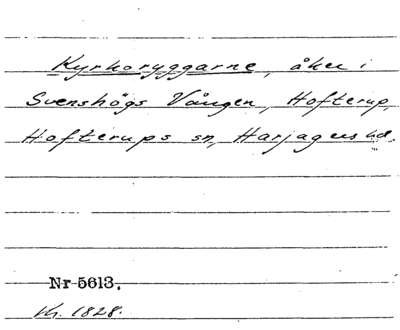 Kyrkoryggarne, åker i
Svenshögs Vången, Hofterup,
Hofterups sn, Harjagers hd.
Nr 5613.
Kh. 1828.